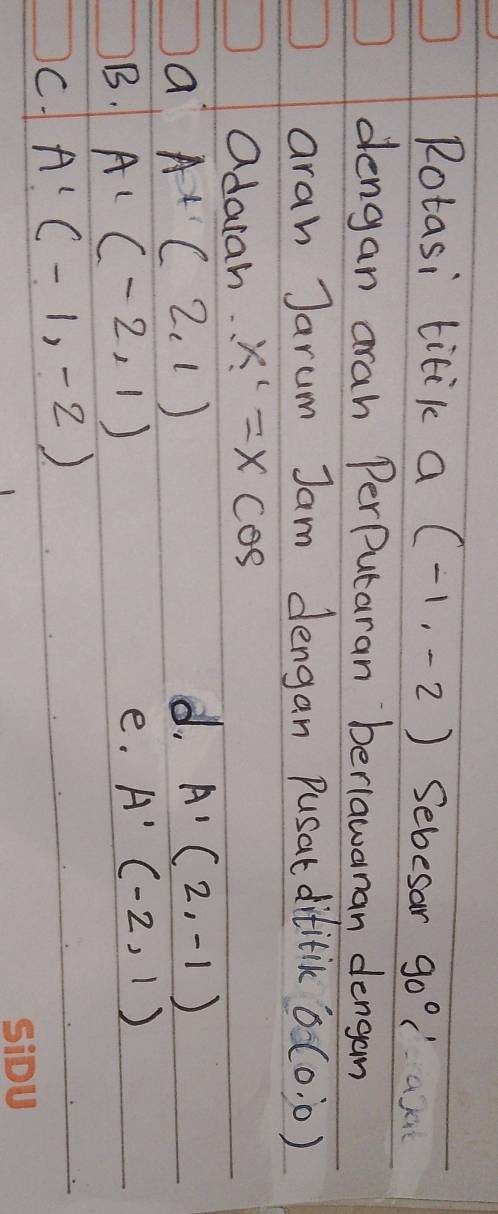 Rotasi titik a (-1, -2) Sebesar 90°
dengan arah Perputaran berlawanan dengan
arah Jarum Jam dengan Pusat dititik O(0,0)
adalah.. x' = x cos
a. A' (2,1) d. A' (2,-1)
B. A' (-2,1) e. A' (-2,1)
C. A' (-1,-2)
SiDU